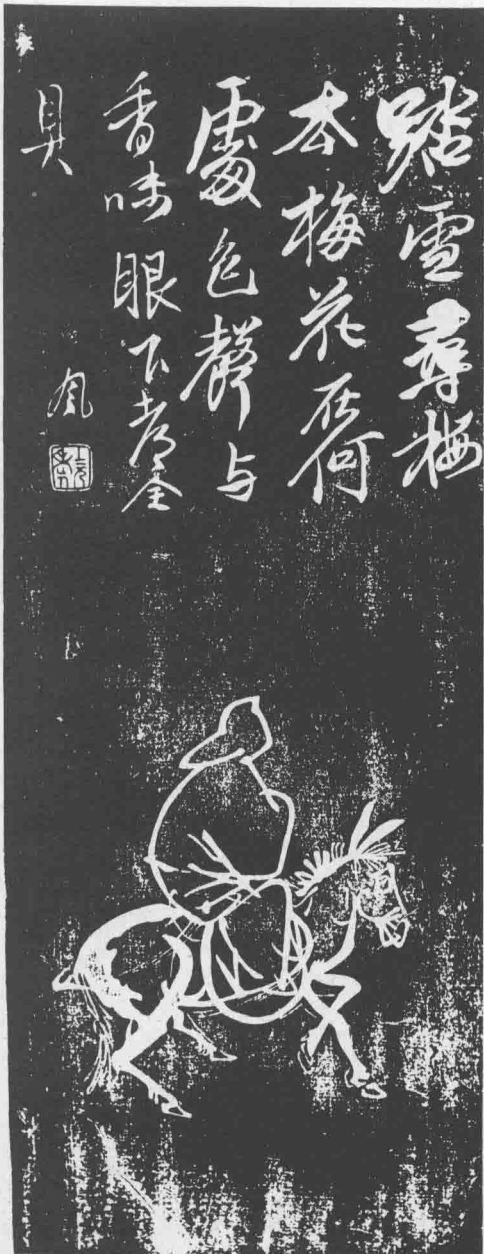 踏雪尋梅
本梅花在何
處色聲与
香味眼下全
具
風